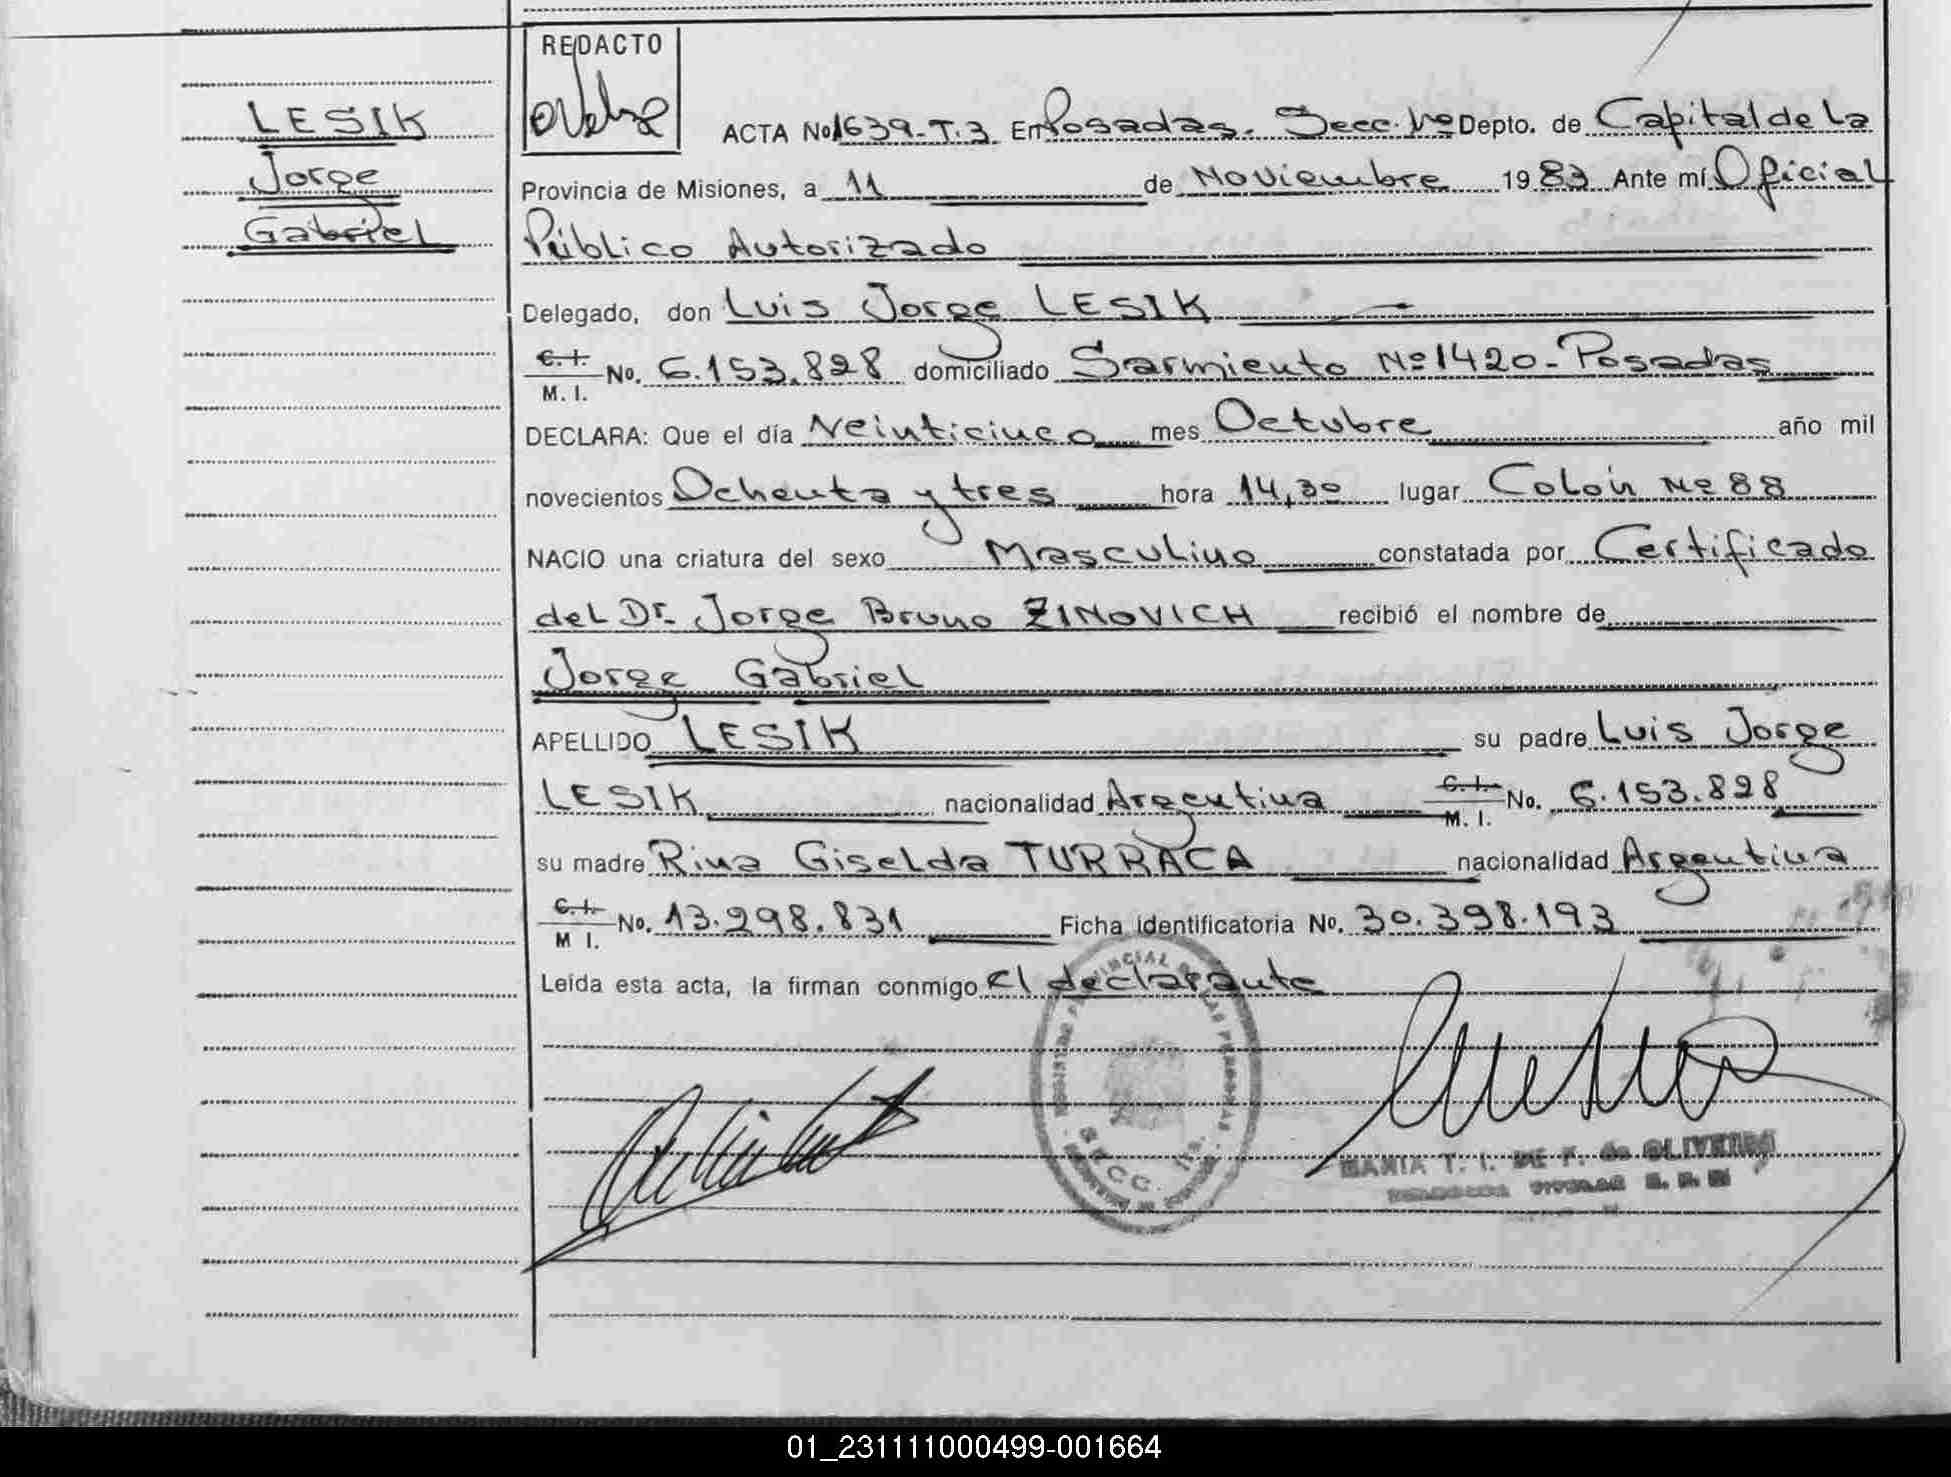 LESIK
Jorge
Gabriel
REDACTO
ACTA No 1639-T.3 En Posadas. Secc. 1º Depto. de Capital de La
Provincia de Misiones, a 11 de Noviembre 1983 Ante mí Oficial
Público Autorizado
Delegado, don Luis Jorge LESIK
C.I. / M. I. No. 6.153.828 domiciliado Sarmiento Nº 1420 - Posadas
DECLARA: Que el día Veinticinco mes Octubre año mil
novecientos Ochenta y tres hora 14,30 lugar Colón Nº 88
NACIO una criatura del sexo Masculino constatada por Certificado
del Dr. Jorge Bruno ZINOVICH recibió el nombre de
Jorge Gabriel
APELLIDO LESIK su padre Luis Jorge
LESIK nacionalidad Argentina C.I. / M. I. No. 6.153.828
su madre Rina Giselda TURRACA nacionalidad Argentina
C.I. / M I. No. 13.298.831 Ficha identificatoria No. 30.398.193
Leída esta acta, la firman conmigo el declarante
REGISTRO PROVINCIAL DE LAS PERSONAS
SECC. 1ra.
MARIA T. I. DE F. de OLIVEIRA
01_231111000499-001664